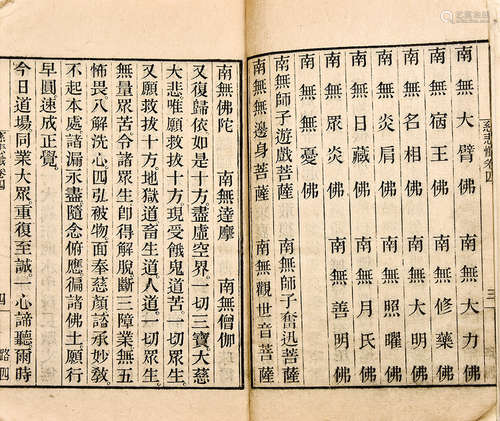 南無大臂佛　南無大力佛
南無宿王佛　南無修藥佛
南無名相佛　南無大明佛
南無炎肩佛　南無照曜佛
南無日藏佛　南無月氏佛
南無眾炎佛　南無善明佛
南無無憂佛
南無師子遊戲菩薩　南無師子奮迅菩薩
南無無邊身菩薩　南無觀世音菩薩
南無佛陀　南無達摩　南無僧伽
又復歸依如是十方盡虛空界。一切三寶大慈
大悲唯願救拔十方現受餓鬼道苦。一切眾生。
又願救拔十方地獄道畜生道人道。一切眾生。
無量眾苦令諸眾生即得解脫斷三障業無五
怖畏八解洗心四弘被物面奉慈顏諮承妙教。
不起本處諸漏永盡隨念俯應徧諸佛土願行
早圓速成正覺。
今日道場。同業大眾。重復至誠。一心諦聽爾時
四
路四